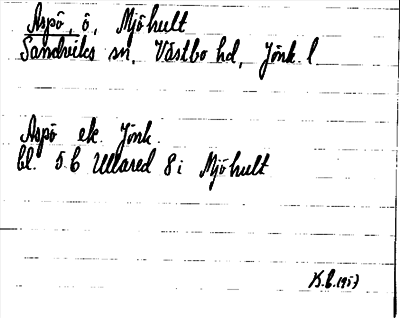 Aspö, ö, Mjöhult
Sandviks sn, Västbo hd, Jönk. l
Aspö ek. Jönk.
bl. 5 C Ullared 8 i Mjöhult
K.E. 1957